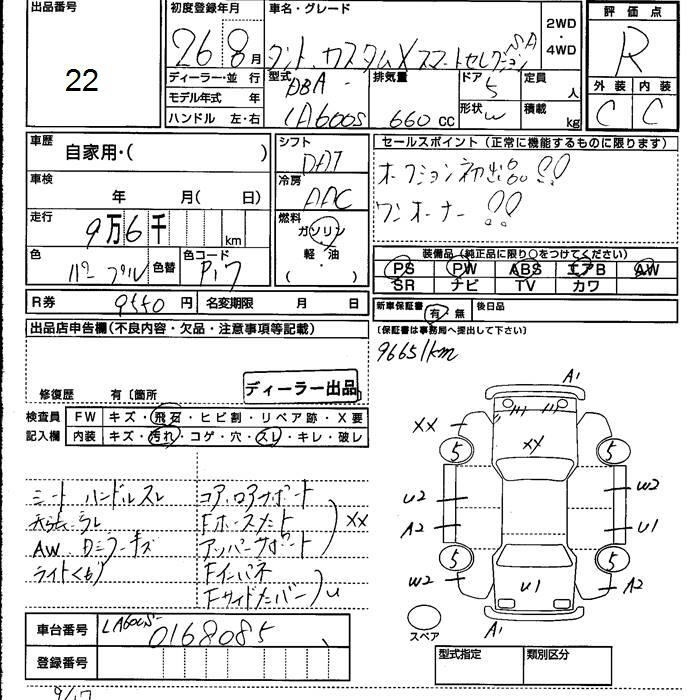 出品番号
22
初度登録年月
26 8月
車名・グレード
タント カスタムX スマートセレクションSA
2WD
・
4WD
評価点
R
外装 内装
C C
ディーラー・並 行
モデル年式 年
ハンドル 左・右
型式
DBA-
LA600S
排気量
660 cc
ドア
5
形状 W
定員
人
積載
kg
車歴
自家用・( )
シフト
DAT
車検
年 月( 日)
冷房
AAC
走行
9万6千 km
燃料
ガソリン
・
軽・油
( )
色
パープル
色替
色コード
P17
R券 9550円 名変期限 月 日
セールスポイント(正常に機能するものに限ります)
オークション初出品!!
ワンオーナー!!
装備品(純正品に限り○をつけてください)
PS PW ABS エアB AW
SR ナビ TV カワ
新車保証書 有・無 後日品
(保証書は事務局へ提出して下さい)
96651km
出品店申告欄(不良内容・欠品・注意事項等記載)
ディーラー出品
修復歴 有〔箇所
検査員
記入欄
FW キズ・飛石・ヒビ割・リペア跡・X要
内装 キズ・汚れ・コゲ・穴・スレ・キレ・破レ
シート ハンドルスレ
AW
ライトくもり
コアロアサポート
Fホースメント
アッパーサポート
XX
Fインパネ
Fサイドメンバー
U
A1
XX
XY
5
5
U2
W2
A2
U1
5
5
W2
U1
A2
スペア
A1
車台番号 LA600S-
0168085
登録番号
型式指定 類別区分
9/17